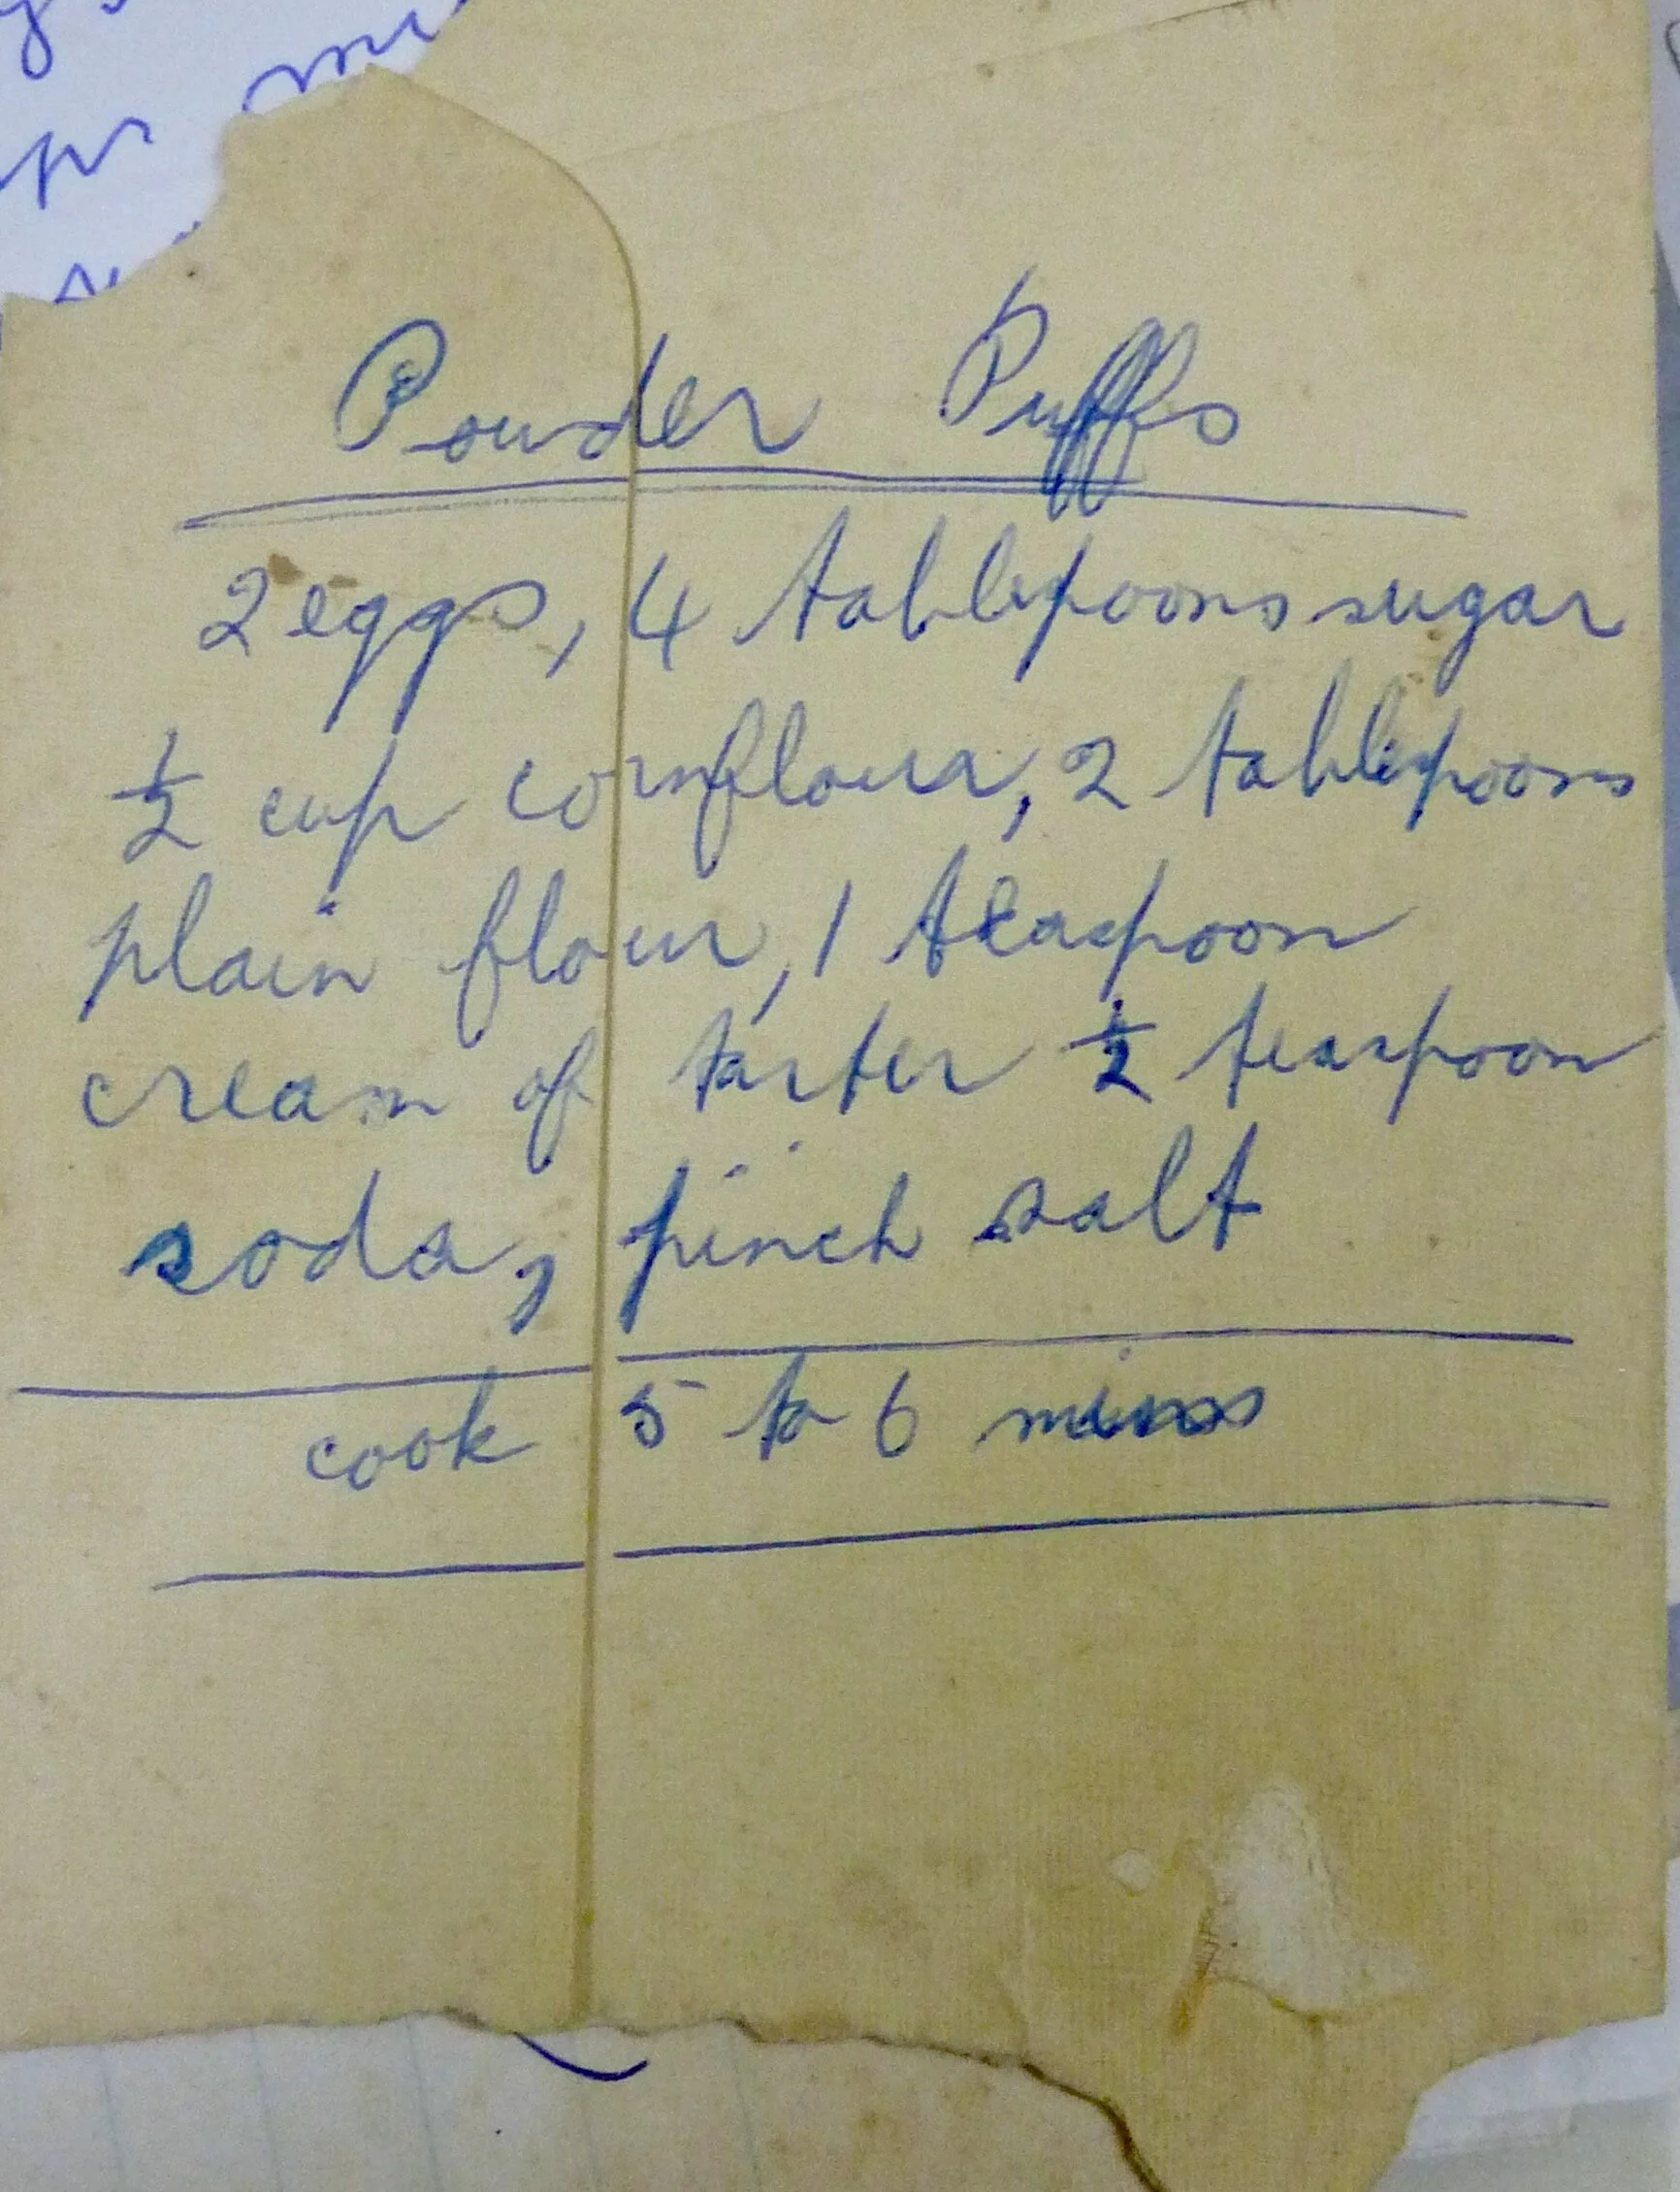 Powder Puffs
2 eggs, 4 tablespoons sugar
½ cup cornflour, 2 tablespoons
plain flour, 1 teaspoon
cream of tarter ½ teaspoon
soda, pinch salt
cook 5 to 6 mins